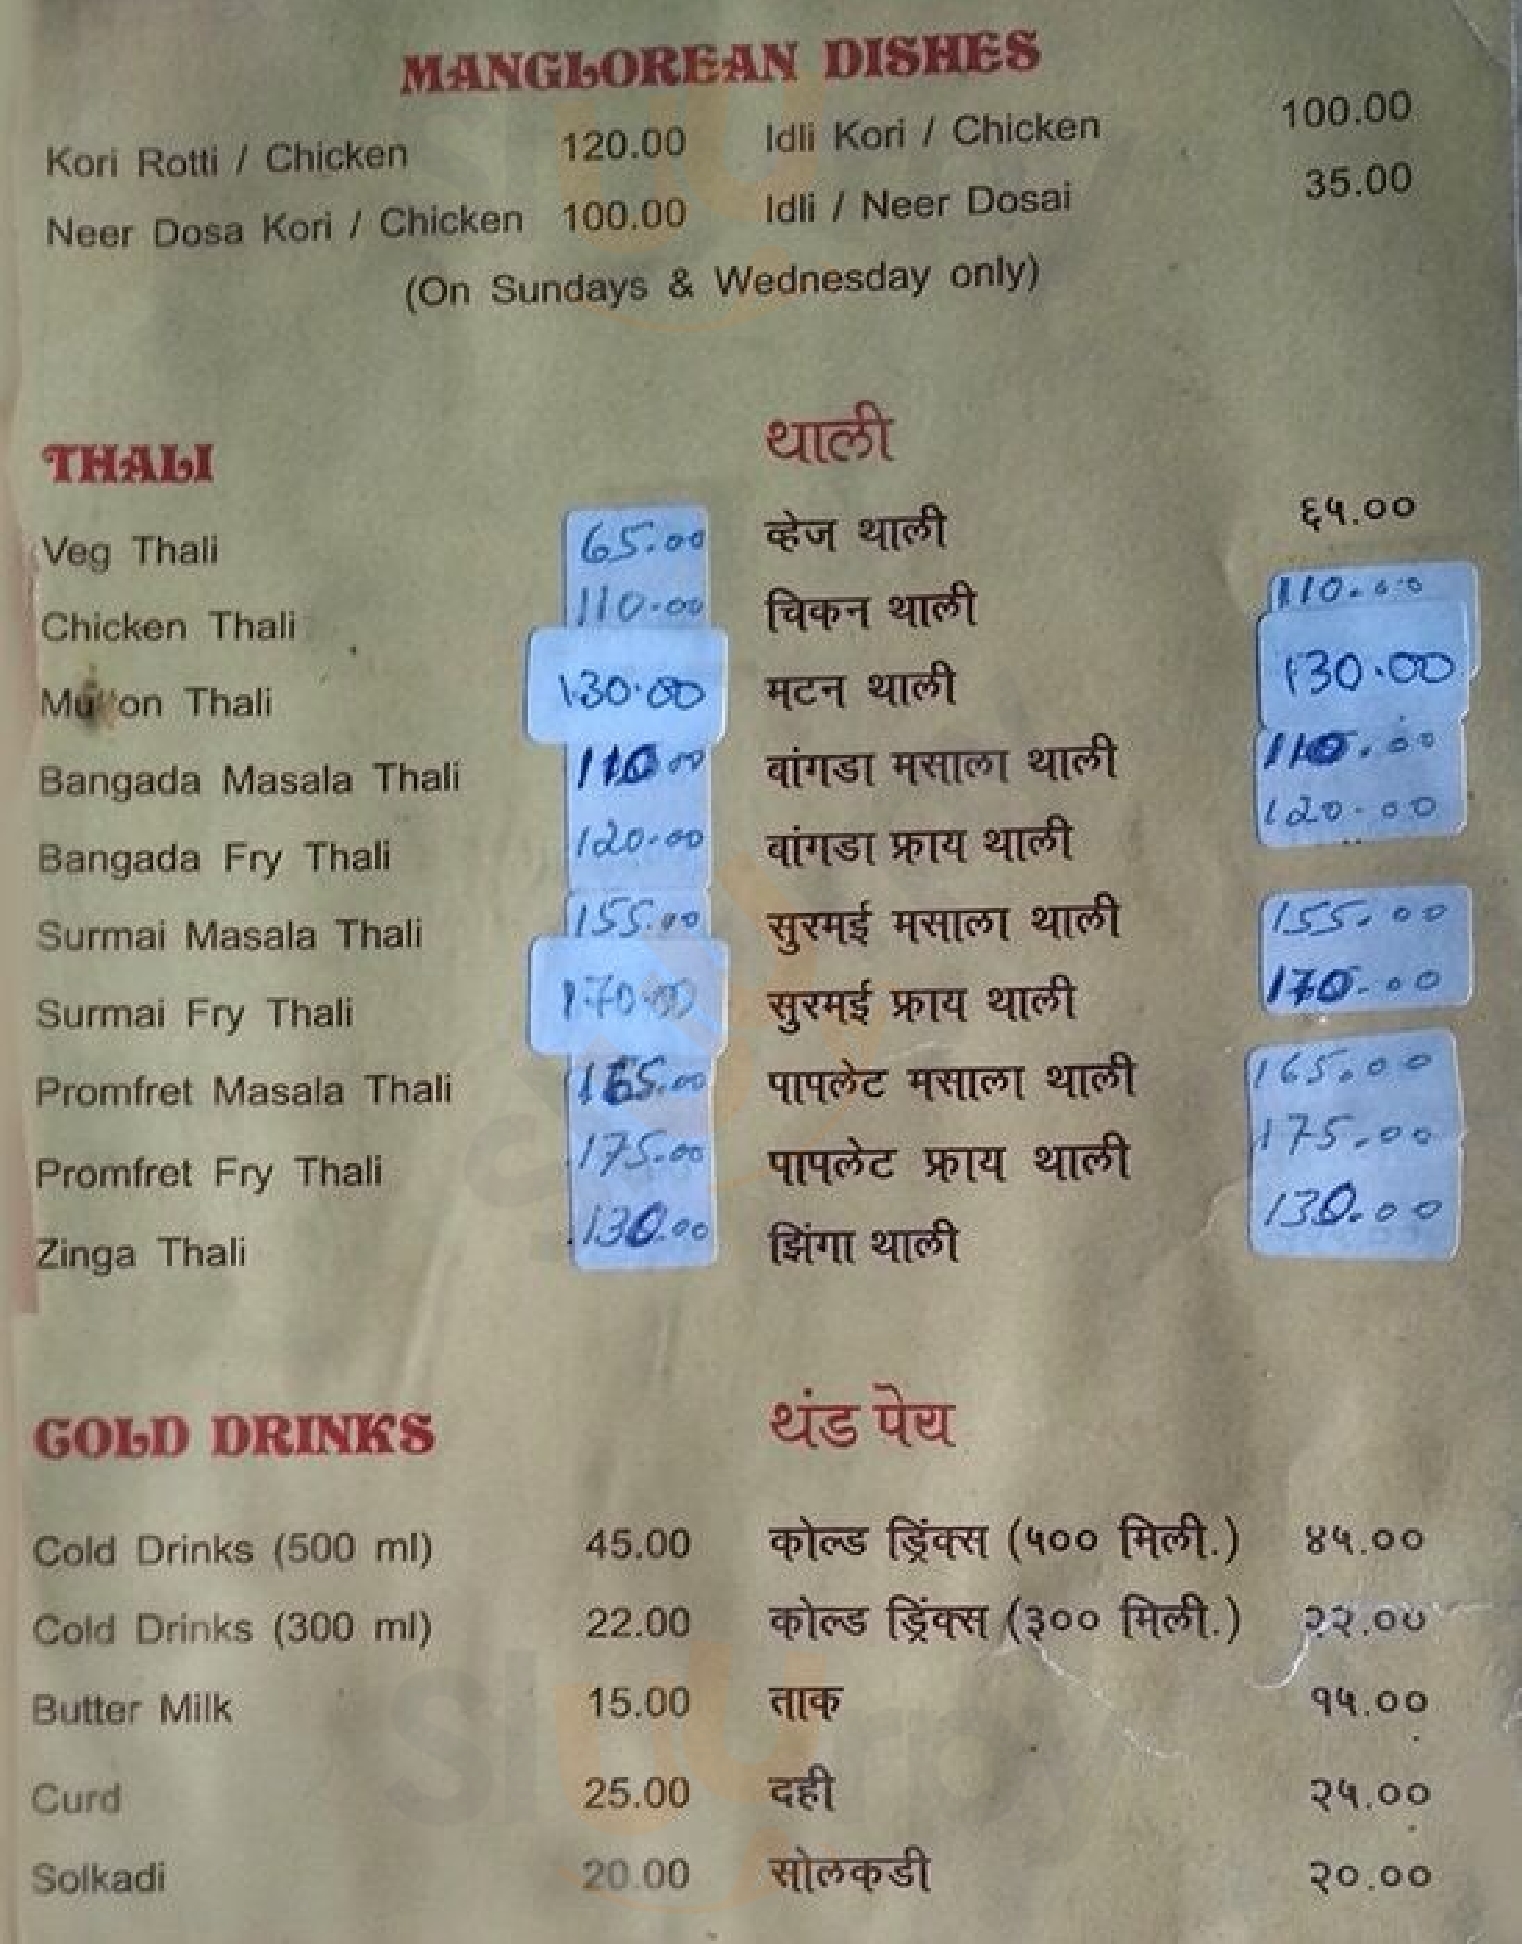 MANGLOREAN DISHES
Kori Rotti / Chicken 120.00 Idli Kori / Chicken 100.00
Neer Dosa Kori / Chicken 100.00 Idli / Neer Dosai 35.00
(On Sundays & Wednesday only)
THALI थाली
Veg Thali 65.00 व्हेज थाली ६५.००
Chicken Thali 110.00 चिकन थाली 110.00
Mutton Thali 130.00 मटन थाली 130.00
Bangada Masala Thali 110.00 वांगडा मसाला थाली 110.00
Bangada Fry Thali 120.00 वांगडा फ्राय थाली 120.00
Surmai Masala Thali 155.00 सुरमई मसाला थाली 155.00
Surmai Fry Thali 170.00 सुरमई फ्राय थाली 170.00
Promfret Masala Thali 165.00 पापलेट मसाला थाली 165.00
Promfret Fry Thali 175.00 पापलेट फ्राय थाली 175.00
Zinga Thali 130.00 झिंगा थाली 130.00
COLD DRINKS थंड पेय
Cold Drinks (500 ml) 45.00 कोल्ड ड्रिंक्स (५०० मिली.) ४५.००
Cold Drinks (300 ml) 22.00 कोल्ड ड्रिंक्स (३०० मिली.) २२.००
Butter Milk 15.00 ताक १५.००
Curd 25.00 दही २५.००
Solkadi 20.00 सोलकडी २०.००